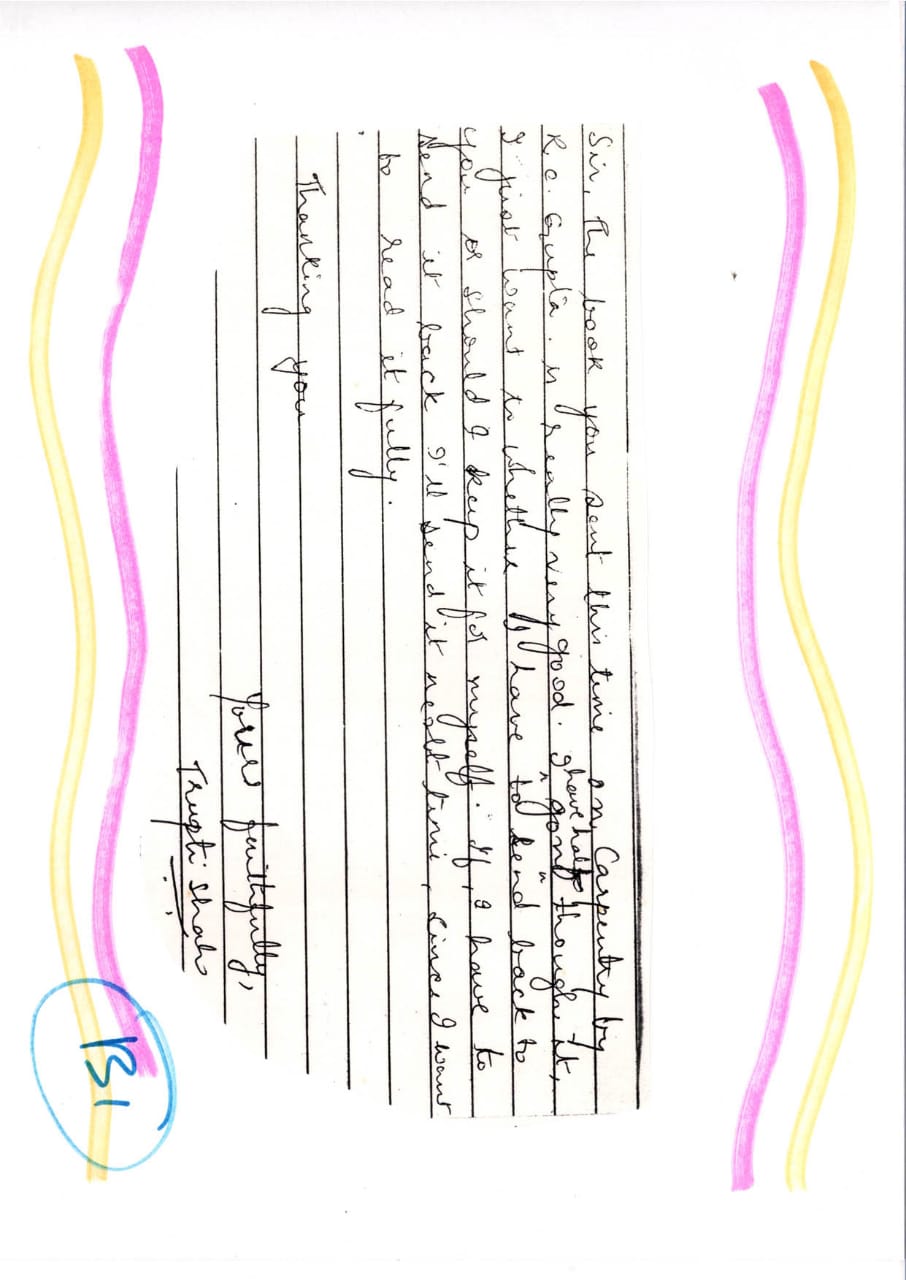 Sir, The book you sent this time on Carpentry by
R.C. Gupta. is really very good. I have half gone though it,
I just want to whether I have to send back to
you or should I keep it for myself. If, I have to
send it back I'll send it next time, since I want
to read it fully.
Thanking you
Yours faithfully,
Trupti Shah
131